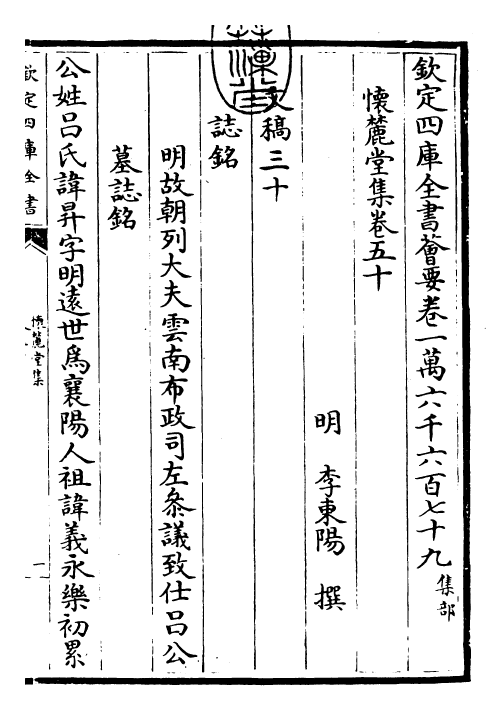 欽定四庫全書薈要卷一萬六千六百七十九集部
懷麓堂集卷五十
明　李東陽　撰
文稿三十
誌銘
明故朝列大夫雲南布政司左叅議致仕呂公
墓誌銘
公姓呂氏諱昇字明遠世爲襄陽人祖諱義永樂初累
欽定四庫全書
懷麓堂集
一